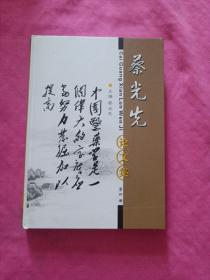 蔡光先
Cai Guang Xian Lun Wen Ji
论文集
中国医药学是一
个伟大的宝库应
当努力发掘加以
提高